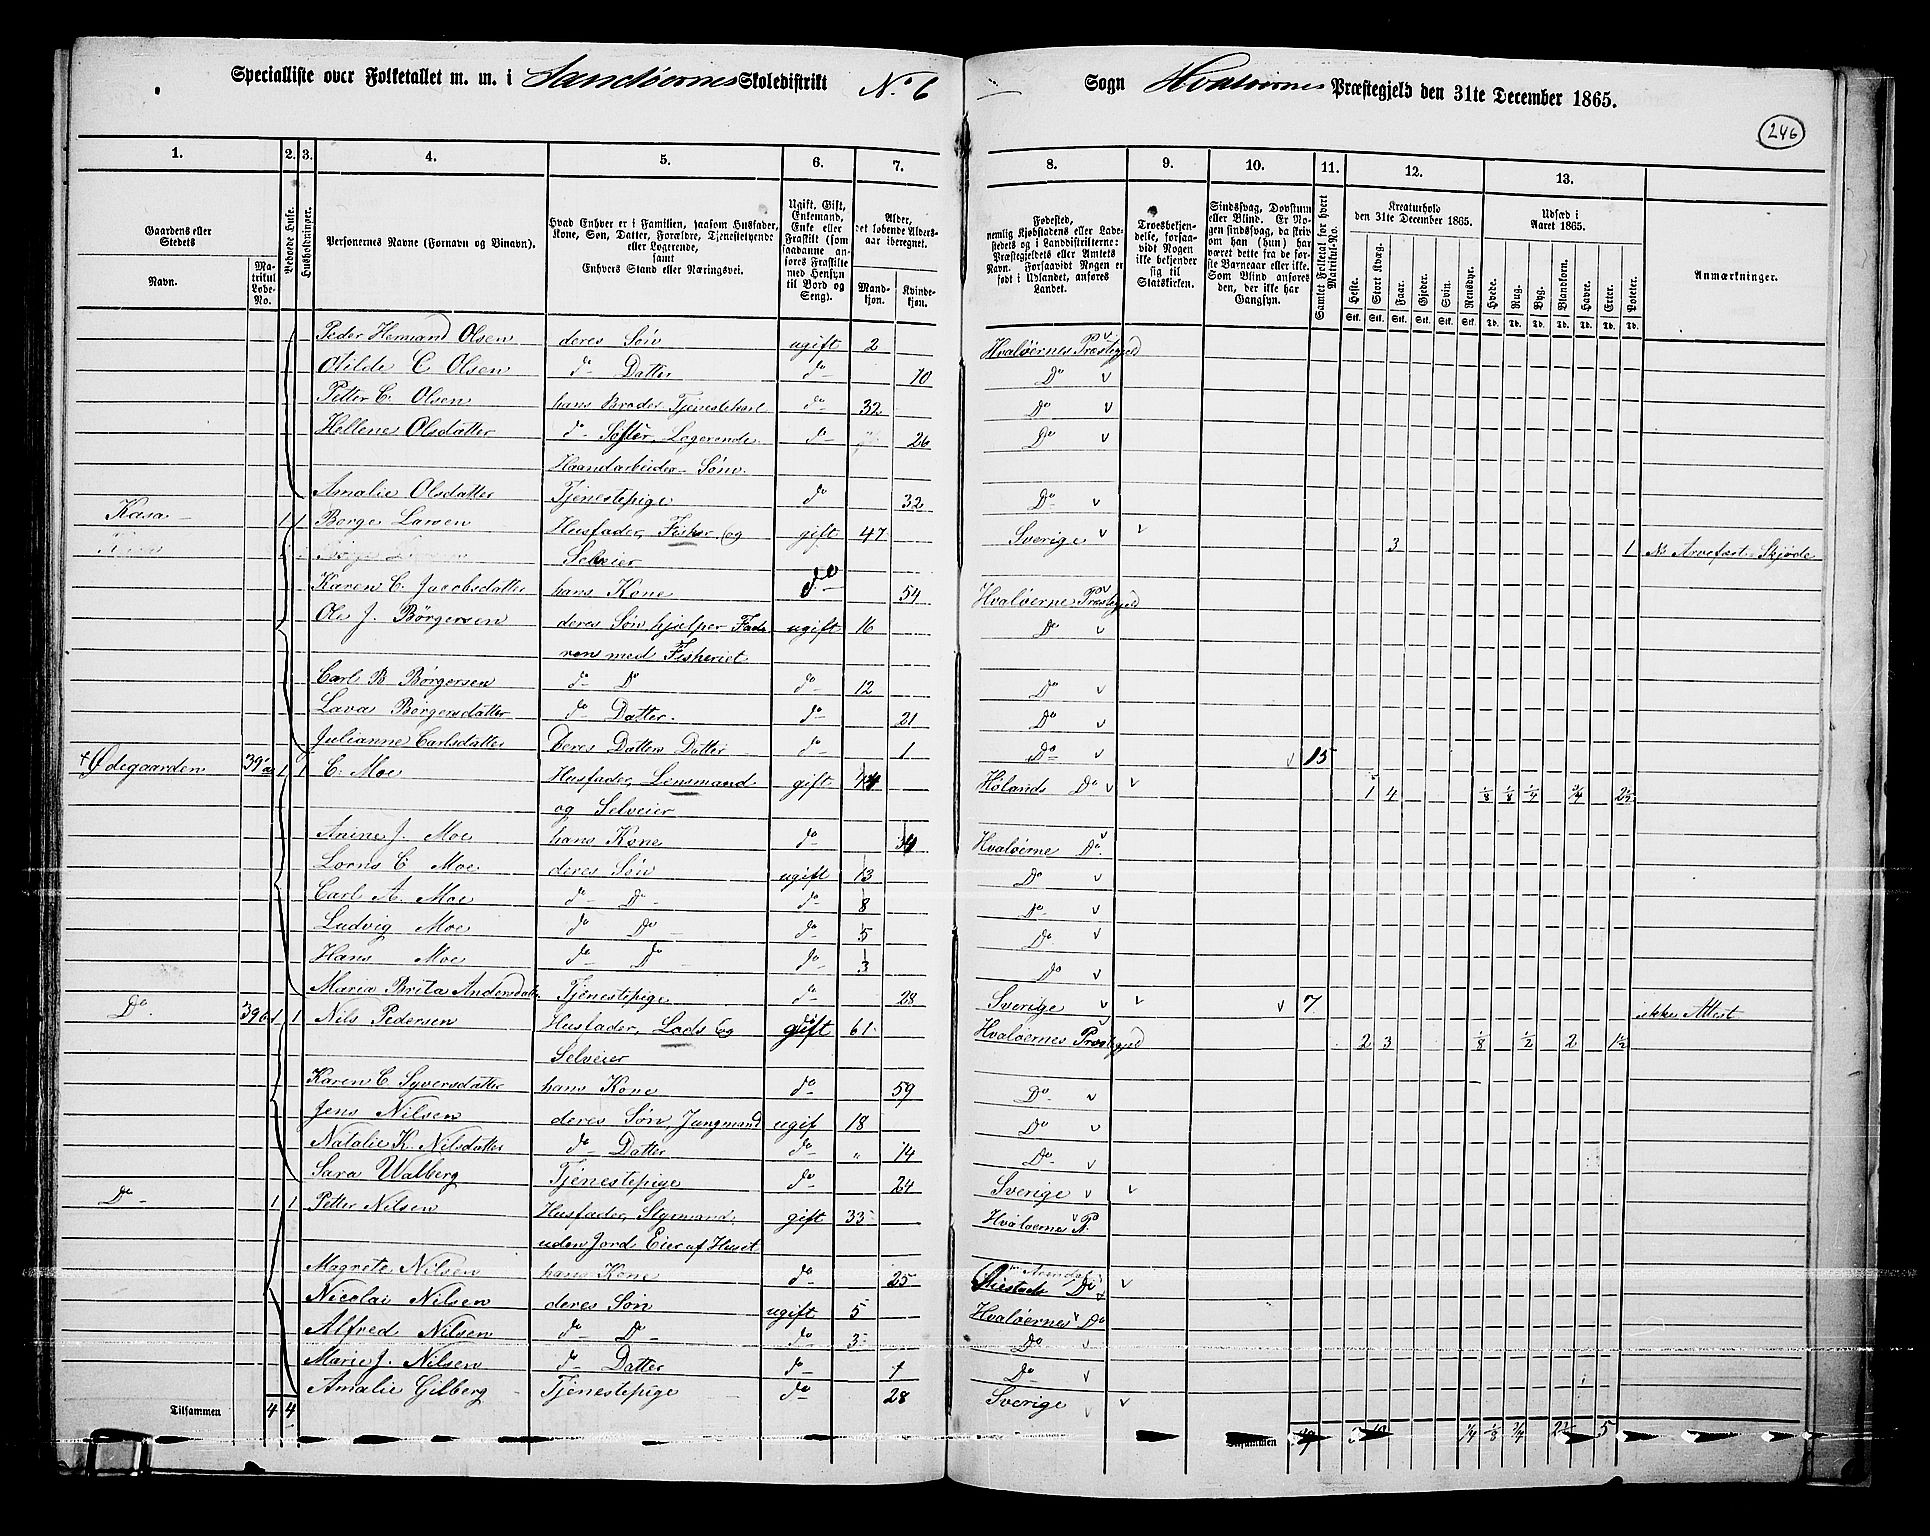 Specialliste over Folketallet m. m. i Sandøernes Skoledistrikt No 6 Sogn Hvaløernes Præstegjeld den 31te December 1865.
246
1. 2. 3. 4. 5. 6. 7. 8. 9. 10. 11. 12. 13.
Gaardens eller Stedets
Navn.
Matrikul Løbe-No.
Beboede Huse.
Husholdninger.
Personernes Navne (Fornavn og Binavn).
Hvad Enhver er i Familien, saasom Husfader, Kone, Søn, Datter, Forældre, Tjenestetyende eller Logerende, samt Enhvers Stand eller Næringsvei.
Ugift, Gift, Enkemand, Enke eller Fraskilt (som saadanne anføres Fraskilte med Hensyn til Bord og Seng).
Alder, det løbende Aldersaar iberegnet.
Mandkjøn.
Kvindekjøn.
Fødested, nemlig Kjøbstadens eller Ladestedets og i Landdistrikterne: Præstegjeldets eller Amtets Navn. Forsaavidt Nogen er født i Udlandet, anføres Landet.
Troesbekjendelse, forsaavidt Nogen ikke bekjender sig til Statskirken.
Sindssvag, Døvstum eller Blind. Er Nogen sindssvag, da skriv om han (hun) har været dette fra de første Barneaar eller ikke. Som Blind anføres den, der ikke har Gangsyn.
Samlet Folketal for hvert Matrikul-No.
Kreaturhold den 31te December 1865.
Heste. Stort Kvæg. Faar. Gjeder. Svin. Rensdyr.
Stk. Stk. Stk. Stk. Stk. Stk.
Udsæd i Aaret 1865.
Hvede. Rug. Byg. Blandkorn. Havre. Erter. Poteter.
Td. Td. Td. Td. Td. Td. Td.
Anmærkninger.
Peder Hermand Olsen deres Søn ugift 2 Hvaløernes Præstegjeld
Otilde C Olsen do Datter do 10 Do
Petter C. Olsen hans Broder Tjenestekarl do 32 Do
Hellene Olsdatter do Søster, Logerende do 26 Do
Haandarbeider Søm
Amalie Olsdatter Tjenestepige do 32 Do
Kasa 1 1 Børge Larsen Husfader, Fisker og gift 47 Sverige 3 1
Selveier
Karen C. Jacobsdatter hans Kone do 54 Hvaløerne Præstegjeld
Ole J. Børgersen deres Søn, hjælper Fade ugift 16 Do
rens med Fiskeriet
Carl B Børgersen do Do do 12 Do
Lava Børgersdatter do Datter. do 21 Do
Julianne Carlsdatter Deres Datters Datter do 1 Do 15
Ødegaarden 39a 1 1 C. Moe Husfader, Lensmand gift 44 Hølands Do 1 4 1/8 1/8 1/4 3/4 2 1/2
og Selveier
Anine J. Moe hans Kone do Hvaløerne Do
Lorns C. Moe deres Søn ugift 13 Do
Carl A. Moe do Do do 8 Do
Ludvig Moe do Do do 5 Do
Hans Moe do Do do 3 Do
Maria Brita Andersdatter Tjenestepige do 28 Sverige 7 ikke Attest
Do. 39b 1 1 Nils Pedersen Husfader, Lods og gift 61 Hvaløernes Præstegjeld 2 3 1/8 1/2 2 1 1/2
Selveier
Karen C. Syversdatter hans Kone do 59 Do
Jens Nilsen deres Søn Jungmand ugif 18 Do
Natalie K. Nilsdatter do Datter do 14 Do
Sara Walberg Tjenestepige do 24 Sverige
Do 1 1 Petter Nilsen Husfader, Stymand. gift 33 Hvaløernes P.
uden Jord Eier af Huset
Magrete Nilsen hans Kone do 25 Arendal Do
Nicolai Nilsen deres Søn ugift 5 Hvaløernes Do
Alfred Nilsen do Do do 3 Do
Marie J. Nilsen do Datter do 1 Do
Amalie Gilberg Tjenestepige do 28 Sverige
Tilsammen 4 4 Tilsammen 1/4 1/8 3/4 5